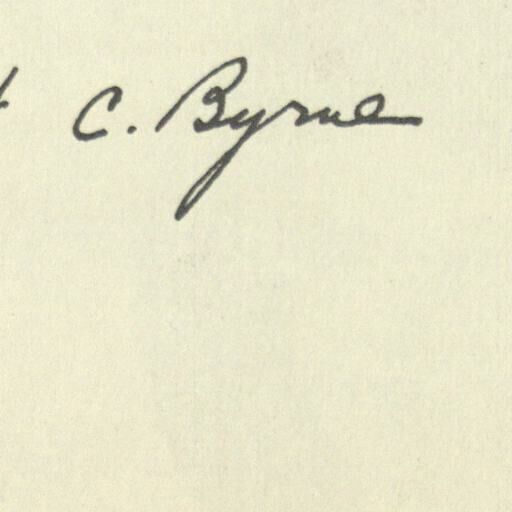 C. Byrne